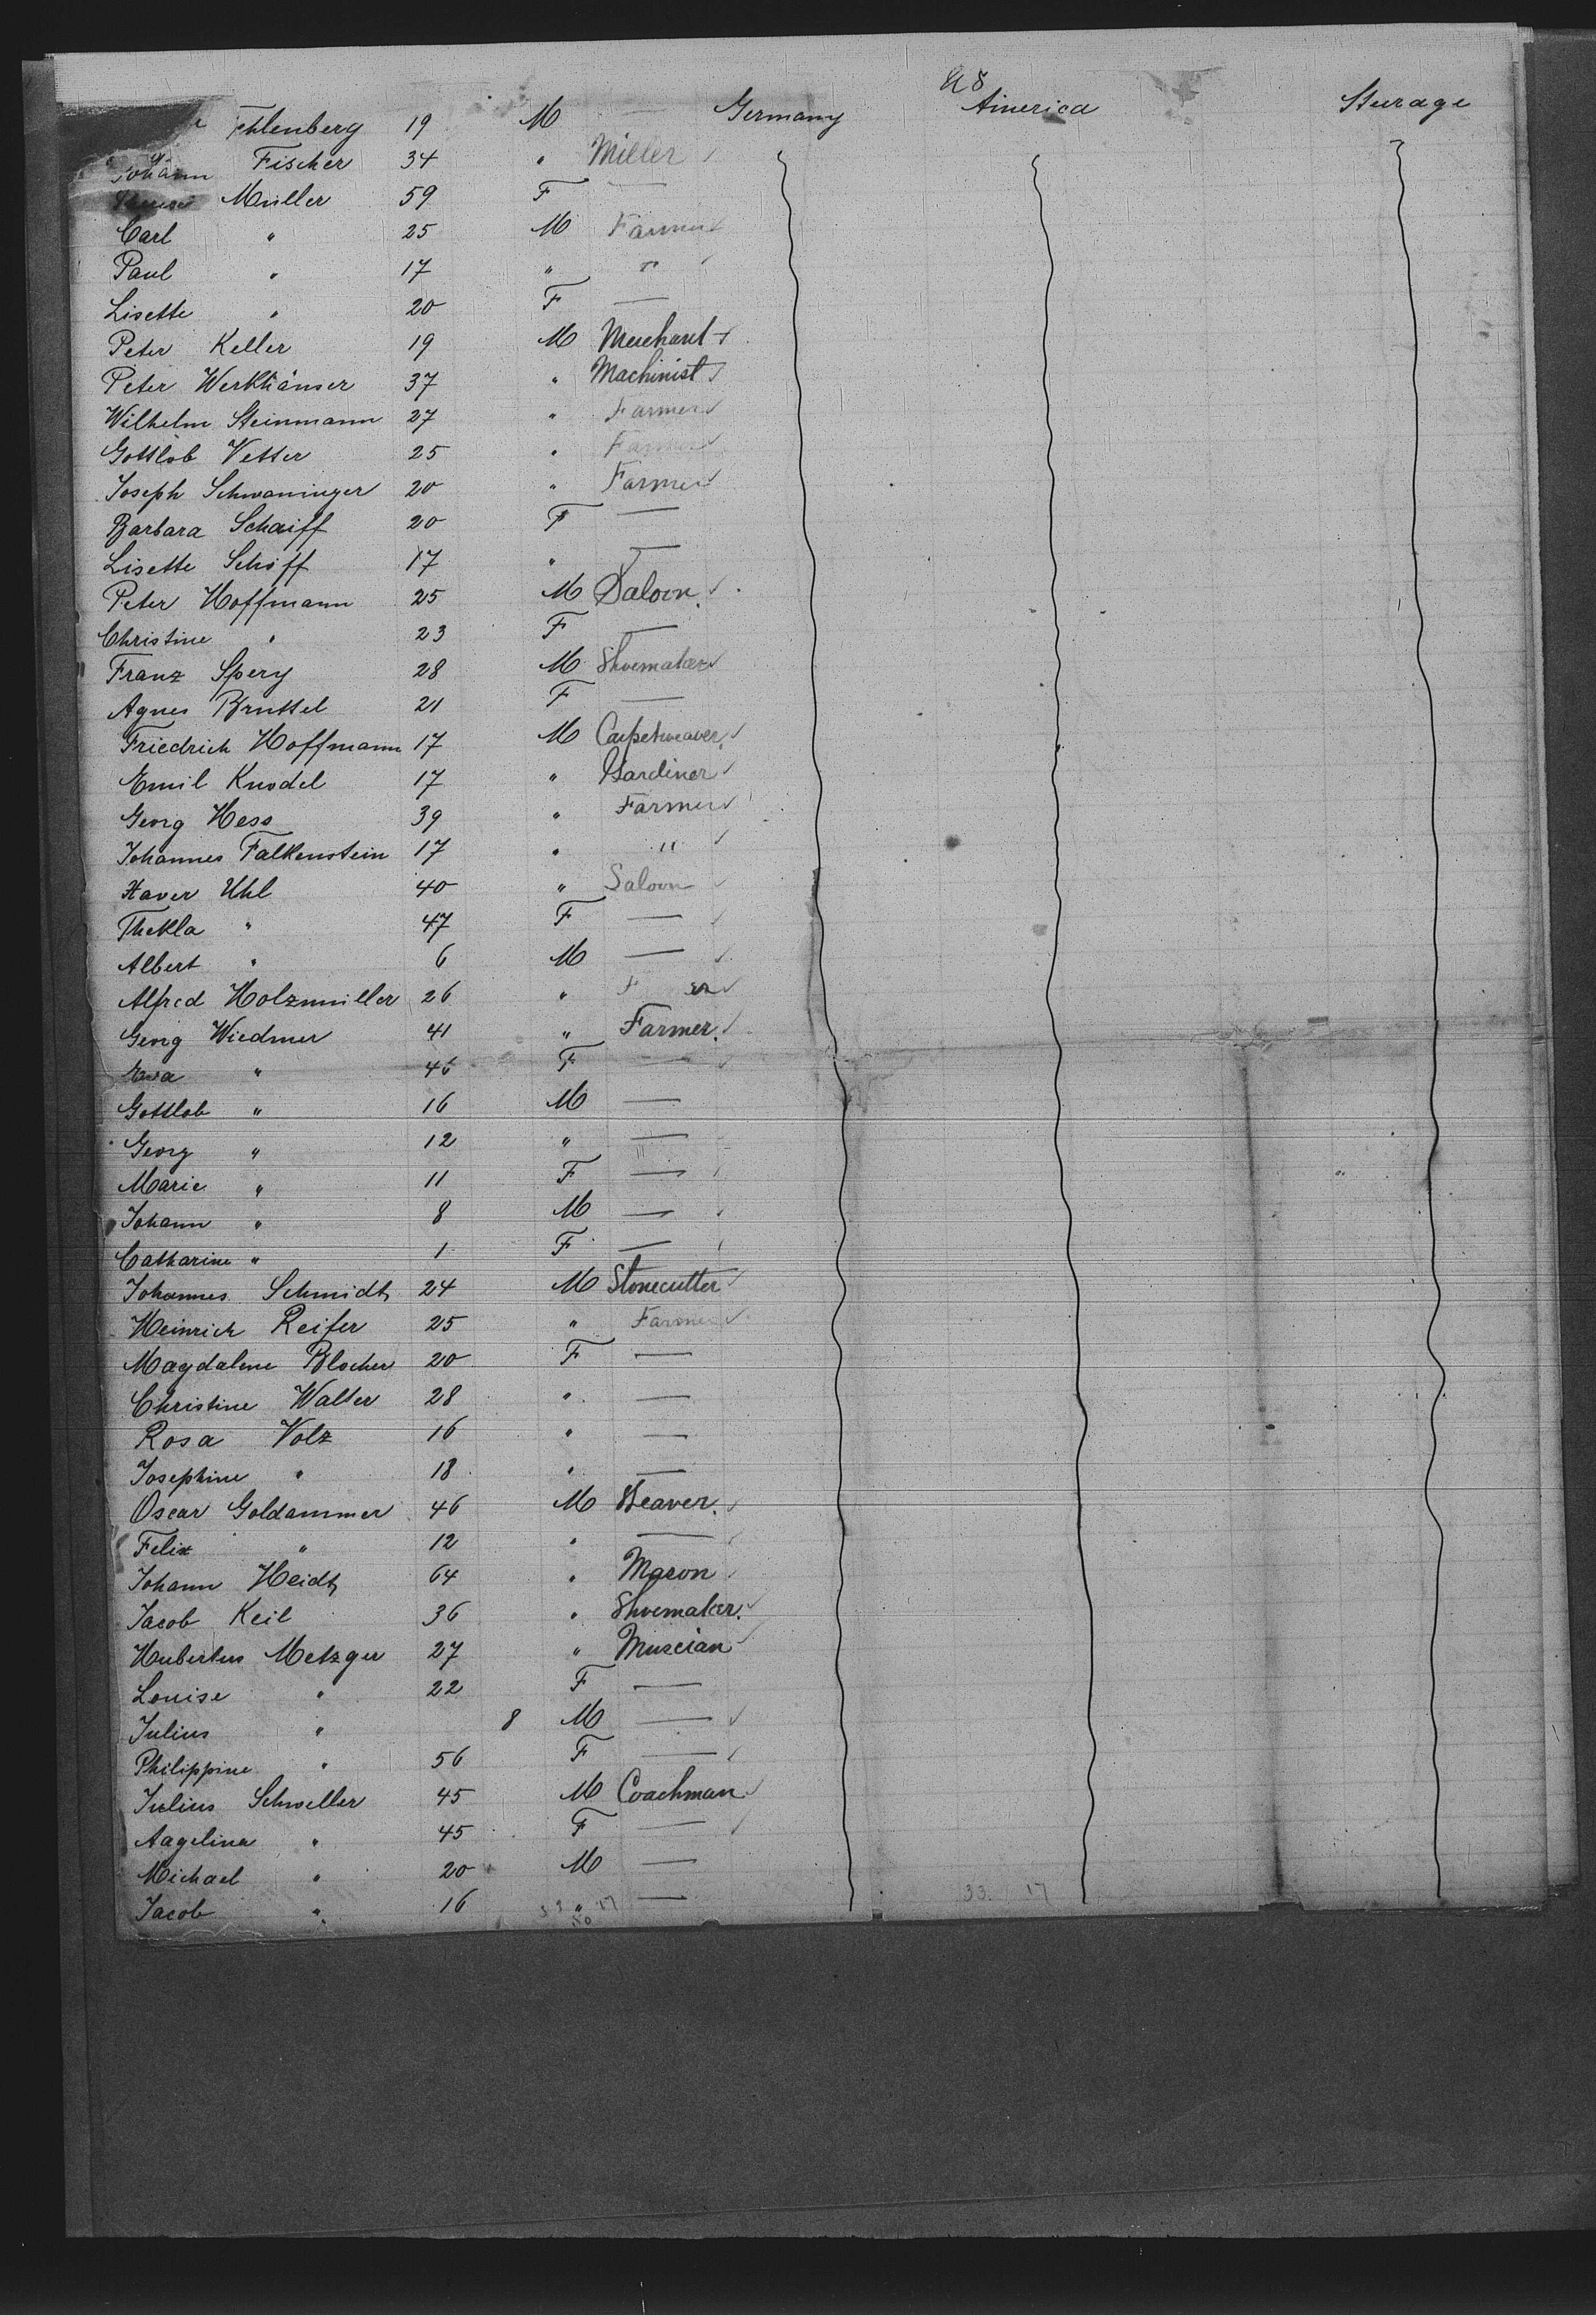 U S
Fehlenberg 19 M — Germany America Steerage
Johann Fischer 34 " Miller
Müller 59 F —
Carl " 25 M Farmer
Paul " 17 " "
Lisette " 20 F —
Peter Keller 19 M Merchant
Peter Werkhäuser 37 " Machinist
Wilhelm Steinmann 27 " Farmer
Gottlob Vetter 25 " Farmer
Joseph Schwaninger 20 " Farmer
Barbara Schaiff 20 F —
Lisette Schiff 17 " —
Peter Hoffmann 25 M Saloon
Christine " 23 F —
Franz Spery 28 M Shoemaker
Agnes Bruttel 21 F —
Friedrich Hoffmann 17 M Carpetweaver
Emil Knodel 17 " Gardiner
Georg Hess 39 " Farmer
Johannes Falkenstein 17 " "
Xaver Uhl 40 " Saloon
Thekla " 47 F —
Albert " 6 M —
Alfred Holzmüller 26 "
Georg Wiedmer 41 " Farmer.
Eva " 46 F —
Gottlob " 16 M —
Georg " 12 " —
Marie " 11 F —
Johann " 8 M —
Catharine " 1 F —
Johannes Schmidt 24 M Stonecutter
Heinrich Reifer 25 " Farmer
Magdalene Blocher 20 F —
Christine Walter 28 " —
Rosa Volz 16 " —
Josephine " 18 " —
Oscar Goldammer 46 M Weaver.
Felix " 12 " —
Johann Heidt 64 " Mason
Jacob Keil 36 " Shoemaker.
Hubertus Metzger 27 " Muscian
Louise " 22 F —
Julius " 8 M —
Philippine " 56 F —
Julius Schweller 45 M Coachman
Aagelina " 45 F —
Michael " 20 M —
Jacob " 16 " —
33 17
50
33. 17